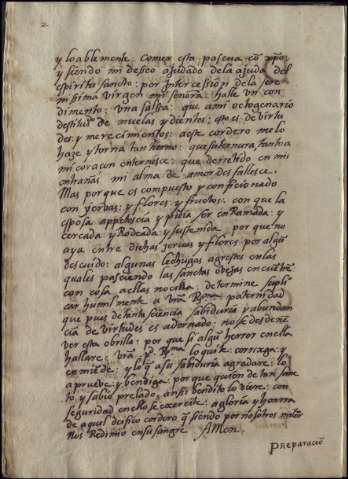 2.
y loablemente. Comer esta pascua cō
y siendo mi deseo ajudado dela ajuda del
espiritu sancto: por intercession de la sere
nissima virgen mi señora: halle un con
dimento: una salsa: que a mi octogenario
destituto de muelas y dientes: esto es de virtu
des y merecimientos: aeste cordero melo
haze y torna tan tierno: que
mi coraçon enternesce: que derretido en mi
entrañas mi alma de amor desfallesce.
Mas porque es compuesto y conficionado
con jervas: y flores: y fructos: con que la
esposa appetescia y pidia ser enRamada: y
cercada y Rodeada y sustenida, por que no
aya entre dichas jervas y flores: por algū
descuido: algunas lechugas agrestes en las
quales pasciendo las sanctas ovejas encuētrē
con cosa a ellas nociva: determine supli
car humilmente a vrā paternidad
que pues de tanta sciencia sabiduria y abundan
cia de virtudes es adornado: no se desdeñe
ver esta obrilla: por que si algū herror en ella
hallare: vrā lo quite: corrixga: y
enmiēde: y lo q̄ a su sabiduria agradare: lo
aprueve: y bendiga: porque quien de tan sanc
to, y sabio prelado, ansi bendito lo viere: con
seguridad en ello se exercite: a gloria y honrra
de aquel deifico cordero q̄ siendo por nosotros
nos Redimio en su sangre. Amen.
Preparaciō